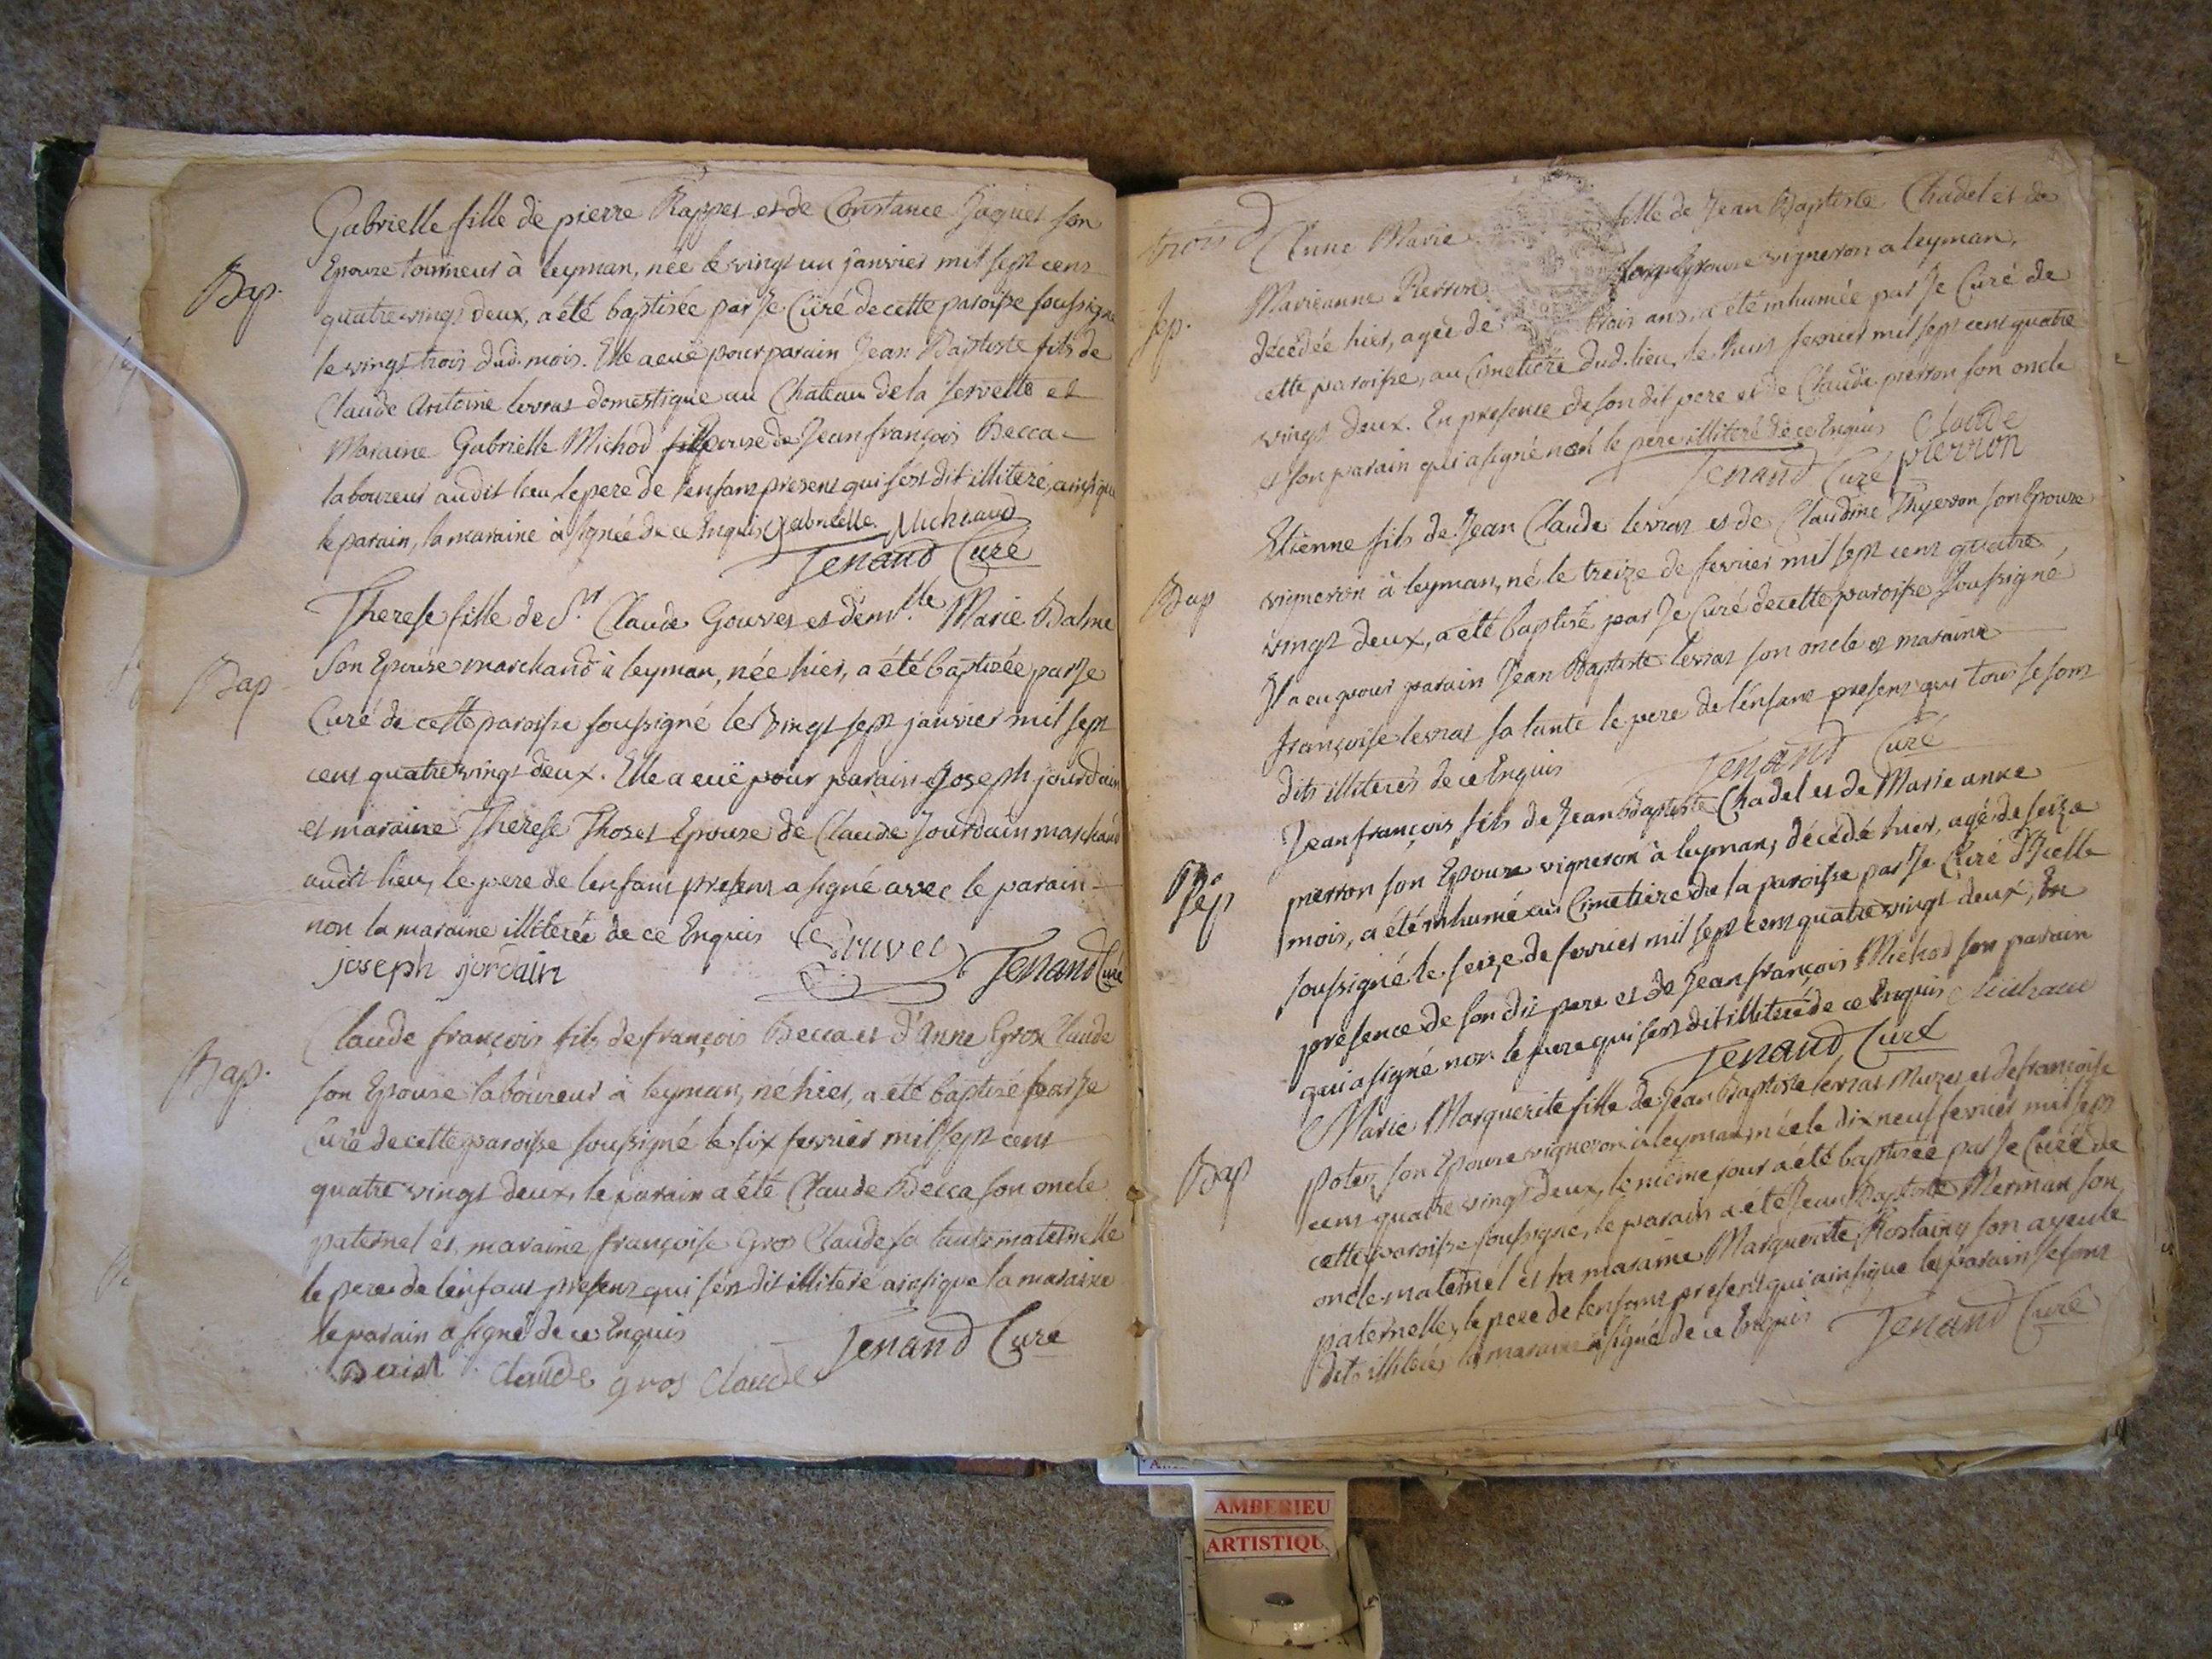 Gabrielle fille de pierre Rappet et de Constance Jaquet son
Bap.
Epouze tourneur à leyman, née le vingt un janvier mil sept cens
quatre vingt deux, a été baptisée par Je Curé de cette paroisse soussigné
le vingt trois dud. mois. Elle a eue pour parain Jean Baptiste fils de
Claude Antoine levrat domestique au Chateau de la servette et
Maraine Gabrielle Michod Epouse de Jean françois Becca
laboureur audit lieu, le pere de l'enfant present qui s'est dit illiteré, ainsi que
le parain, la maraine a signée de ce Enquis Gabrielle Michaud
Tenand Curé
Therese fille de Sr. Claude Gouvet et demlle. Marie Balme
Bap
son Epouse marchand à leyman, née hier, a été baptizée par Je
Curé de cette paroisse soussigné le vingt sept janvier mil sept
cent quatre vingt deux. Elle a euë pour parain Joseph jourdain
et maraine Therese Thoset Epouse de Claude Jourdain marchand
audit lieu, le pere de lenfant present a signé avec le parain
non la maraine illiterée de ce Enquis
joseph jordain Tenand Curé
Claude françois fils de françois Becca et d'Anne Gros Claude
Bap.
son Epouse laboureur à leyman, né hier, a été baptisé par Je
Curé de cette paroisse soussigné le six fevrier mil sept cent
quatre vingt deux, le parain a été Claude Becca son oncle
paternel et maraine françoise Gros Claude sa tante maternelle
le pere de lenfant present qui s'est dit illiteré ainsi que la maraine
le parain a signé de ce Enquis Tenand Curé
Claude gros Claude
trois
Anne Marie fille de Jean Baptiste Chadel et de
Sep.
Marieanne Pierron son Epouse vigneron a leyman,
décédée hier, agée de trois ans, a été inhumée par Je Curé de
cette paroisse, au Cimetiere dud. lieu, le huit fevrier mil sept cent quatre
vingt deux. En presence de son dit pere et de Claude pierron son oncle
et son parain qui a signé non le pere illiteré de ce Enquis Claude
pierron
Tenand Curé
Etienne fils de Jean Claude levrat et de Claudine Thyevon son Epouze
Bap
vigneron à leyman, né le treize de fevrier mil sept cent quatre
vingt deux, a été baptisé par Je Curé de cette paroisse soussigné
Il a eu pour parain Jean Baptiste levrat son oncle et maraine
françoise levrat sa tante le pere de l'énfant present qui tous se sont
dits illiterés de ce Enquis Tenand Curé
Jean françois fils de Jean Baptiste Chadel et de Marieanne
Sep
pierron son Epouze vigneron à leyman, décédé hier, agé de seize
mois, a été inhumé au Cimetiere de la paroisse par Je Curé d'Icelle
soussigné le seize de fevrier mil sept cent quatre vingt deux, En
présence de son dit pere et de Jean françois Michod son parain
qui a signé non le pere qui s'est dit illiteré de ce Enquis Michaud
Tenand Curé
Marie Marguerite fille de Jean Baptiste levrat Muzet et de françoise
Bap
potet son Epouze vigneron à leyman, née le dix neuf fevrier mil sept
cent quatre vingt deux, le même jour a été baptizée par Je Curé de
cette paroisse soussigné, le parain a été Jean Baptiste Merman son
oncle maternel et la maraine Marguerite Rostaing son ayeule
paternelle, le pere de lenfant present qui ainsi que le parain se sont
dits illiterés, la maraine a signé de ce Enquis Tenand Curé
AMBERIEU
ARTISTIQU